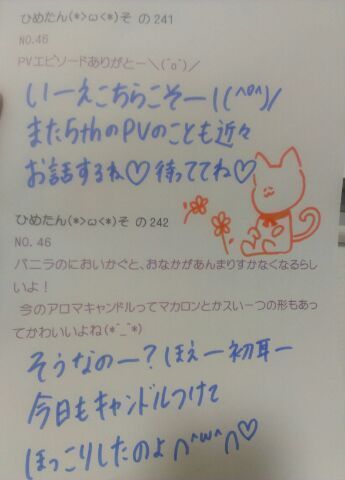 ひめたん(*>ω<*)そ の241
NO.46
PVエピソードありがとー＼(^o^)／
いーえこちらこそー!(^o^)/
また5thのPVのことも近々
お話するね♡待っててね♡
ひめたん(*>ω<*)そ の242
NO.46
バニラのにおいかぐと、おなかがあんまりすかなくなるらし
いよ！
今のアロマキャンドルってマカロンとかスい一つの形もあっ
てかわいいよね(*^_^*)
そうなのー？ほぇー初耳ー
今日もキャンドルつけて
ほっこりしたのよ∩^ω^∩♡